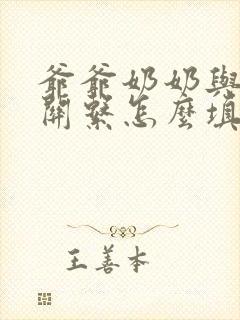 爺爺奶奶與
關繫怎麼填
王善本